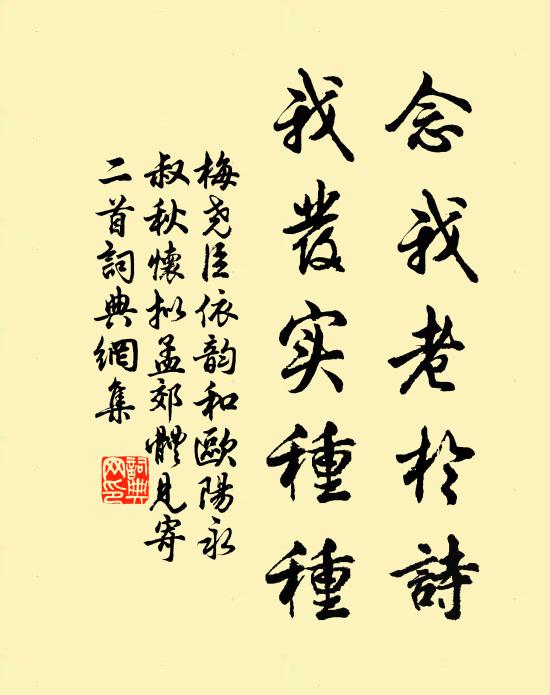 念我老於詩
我發实種種
梅尧臣依韵和歐陽永
叔秋懷拟孟郊體見寄
二首詞典網集
詞典
网印